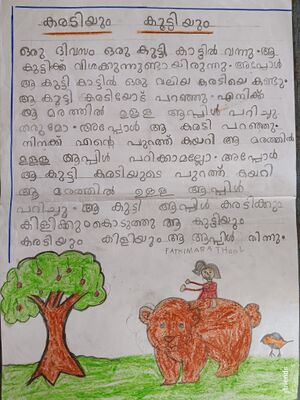 കരടിയും കുട്ടിയും
ഒരു ദിവസം ഒരു കുട്ടി കാട്ടിൽ വന്നു. ആ
കുട്ടിക്ക് വിശക്കുന്നുണ്ടായിരുന്നു. അപ്പോൾ
ആ കുട്ടി കാട്ടിൽ ഒരു വലിയ കരടിയെ കണ്ടു.
ആ കുട്ടി കരടിയോട് പറഞ്ഞു. എനിക്ക്
ആ മരത്തിൽ ഉള്ള ആപ്പിൾ പറിച്ചു
തരുമോ. അപ്പോൾ ആ കരടി പറഞ്ഞു.
നിനക്ക് എന്റെ പുറത്ത് കയറി ആ മരത്തിൽ
ഉള്ള ആപ്പിൾ പറിക്കാമല്ലോ. അപ്പോൾ
ആ കുട്ടി കരടിയുടെ പുറത്ത് കയറി
ആ മരത്തിൽ ഉള്ള ആപ്പിൾ
പറിച്ചു. ആ കുട്ടി ആപ്പിൾ കരടിക്കും
കിളിക്കും കൊടുത്തു ആ കുട്ടിയും
കരടിയും കിളിയും ആ ആപ്പിൾ തിന്നു.
FATHIMARA